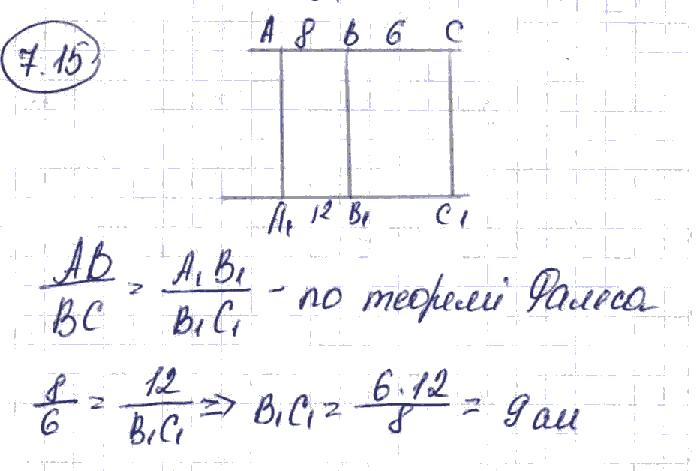 7.15
A 8 B 6 C
A₁ 12 B₁ C₁
AB/BC = A₁B₁/B₁C₁ - по теоремі Фалеса
8/6 = 12/B₁C₁ => B₁C₁ = 6·12/8 = 9 см